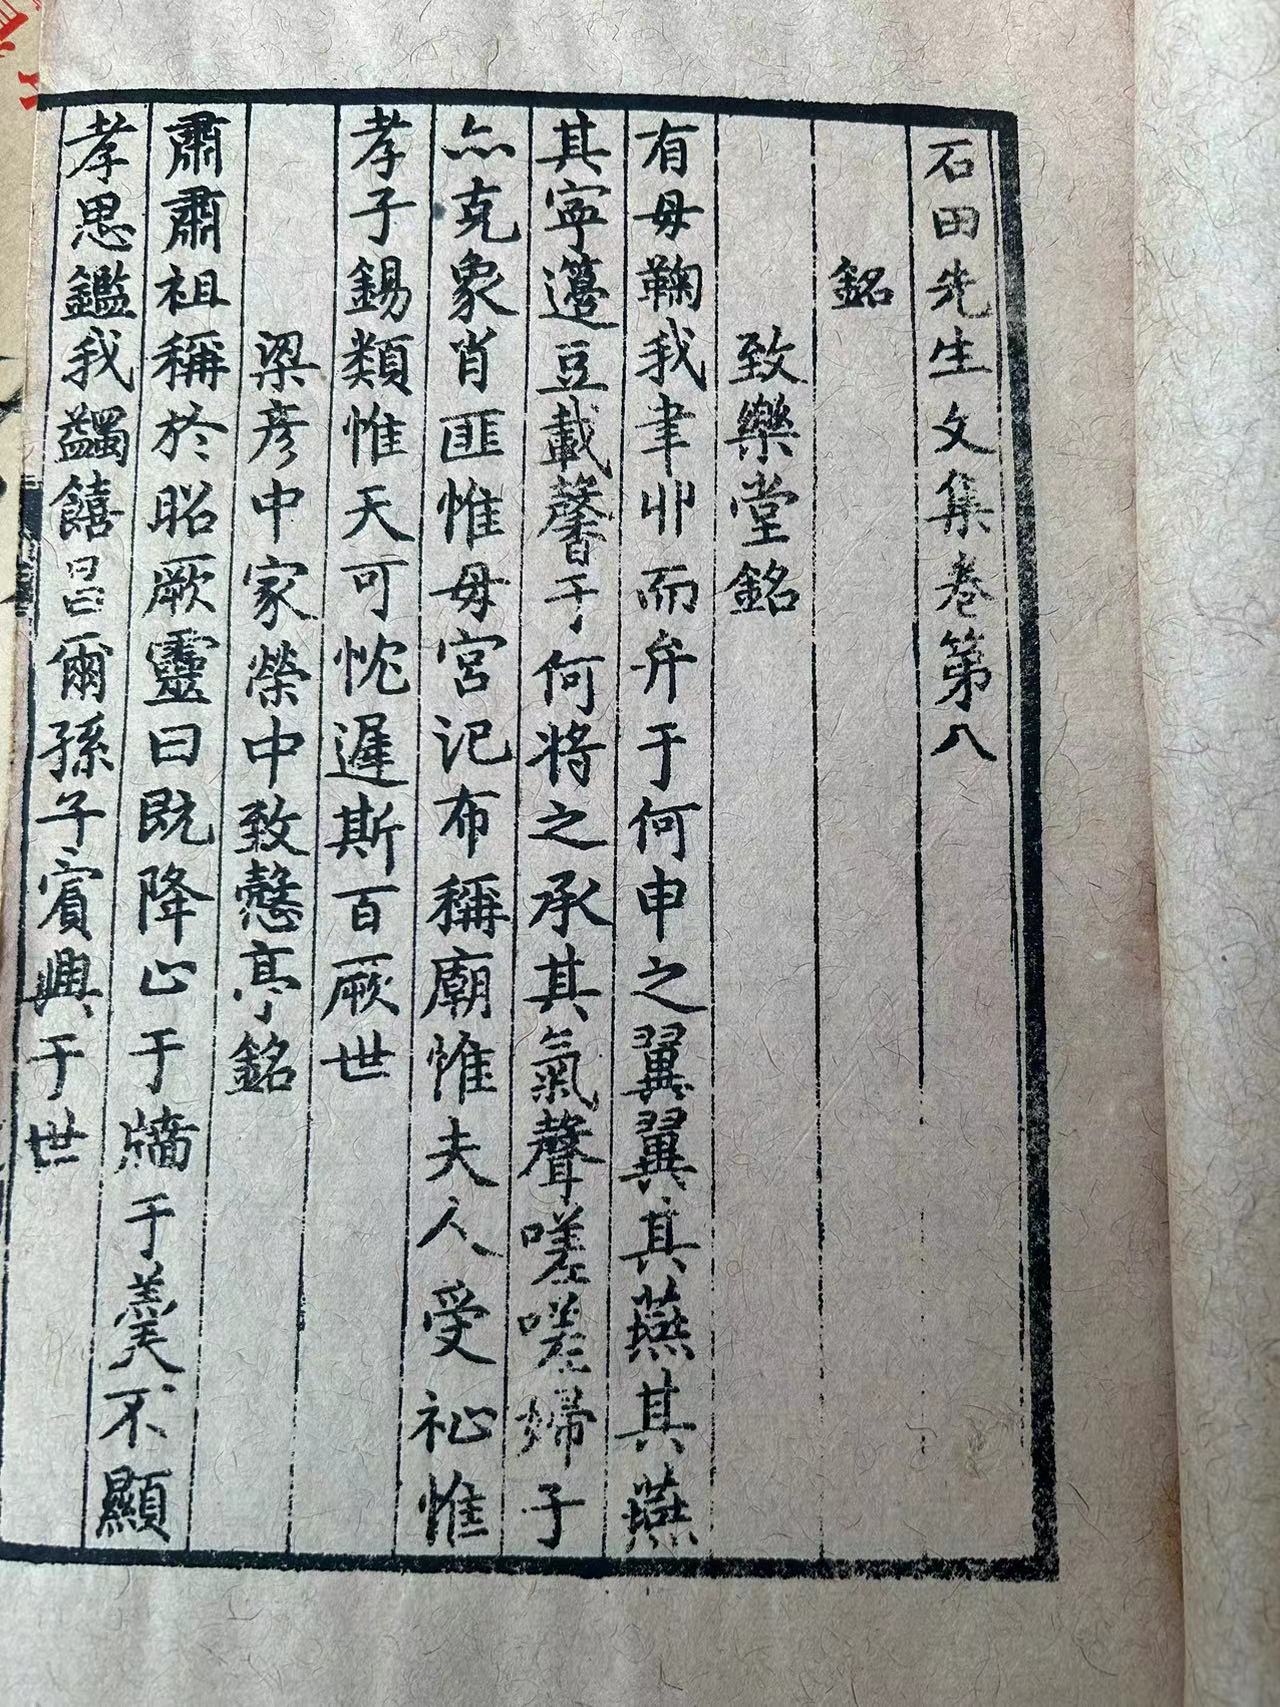 石田先生文集卷第八
銘
致樂堂銘
有母鞠我聿丱而弁于何申之翼翼其燕其燕
其寧籩豆載馨于何將之承其氣聲嗟嗟婦子
亦克象肖匪惟母宮記布稱廟惟夫人受祉惟
孝子錫類惟天可忱遲斯百厥世
梁彥中家榮中致愨亭銘
肅肅祖稱於昭厥靈曰既降止于牆于羹不顯
孝思鑑我蠲饎曰昌爾孫子賓興于世